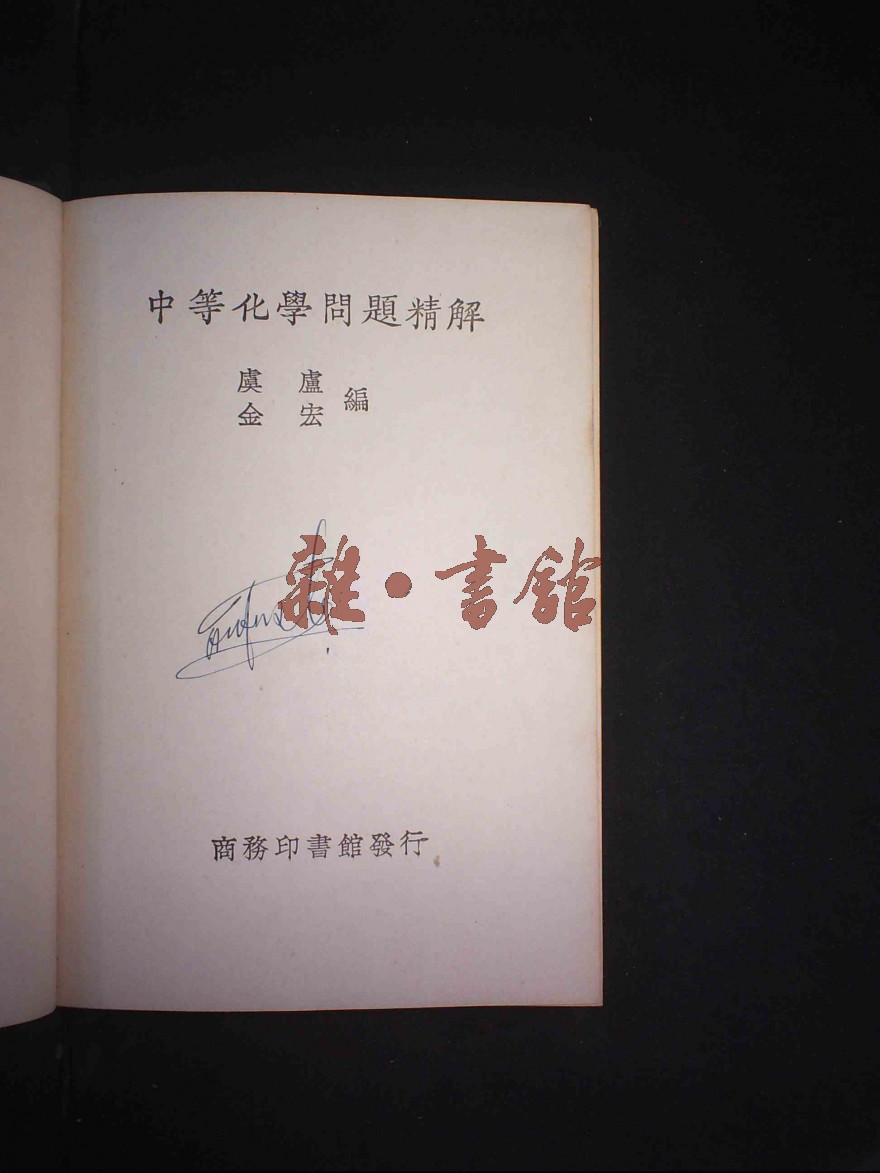 中等化學問題精解
虞 盧
金 宏 編
雜·書館
商務印書館發行